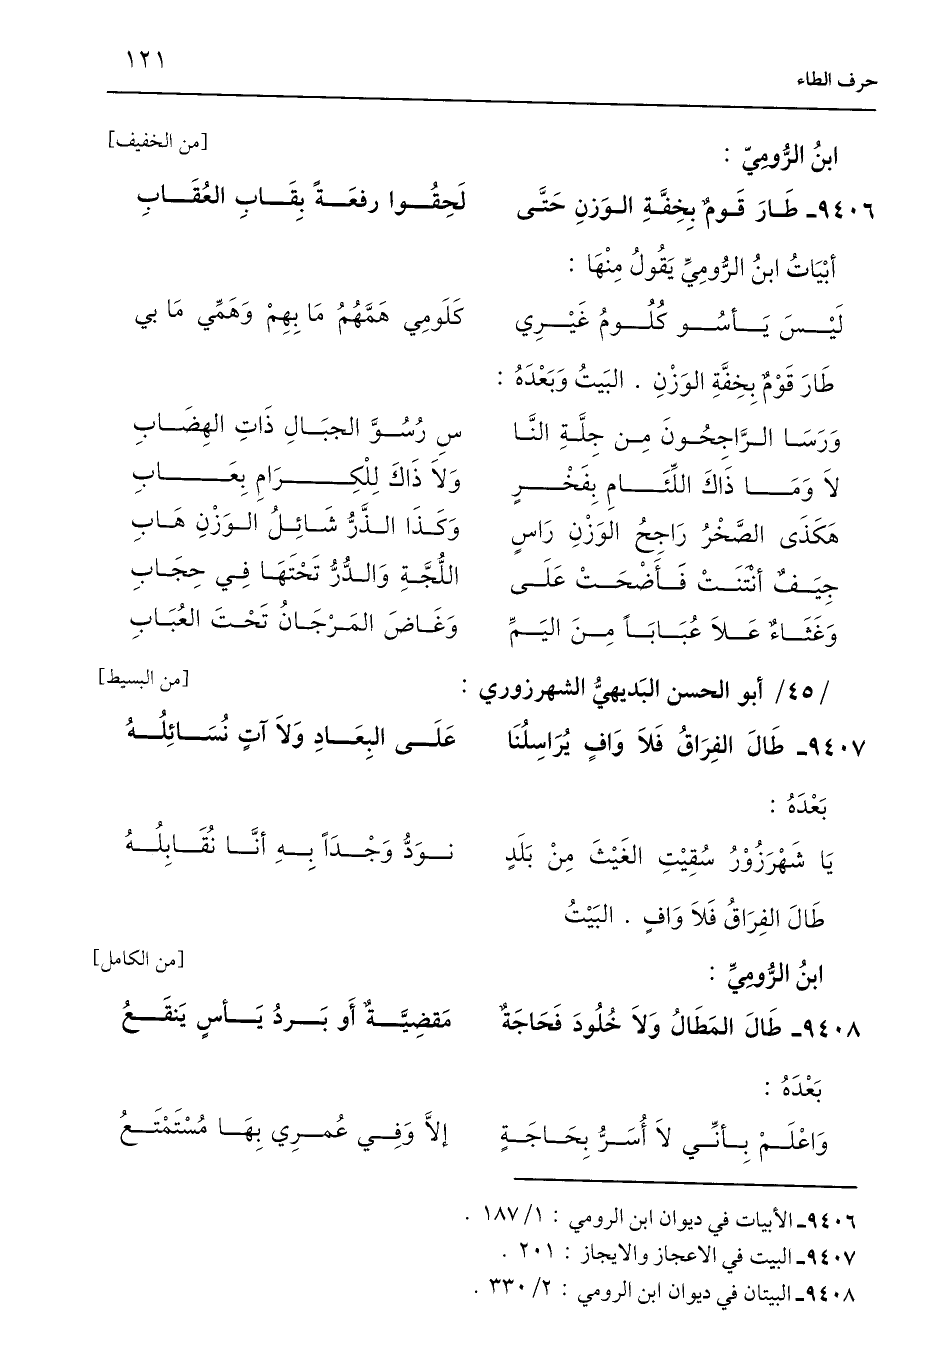 ١٢١
حرف الطاء
ابنُ الرُّوميّ : [من الخفيف]
٩٤٠٦ـ طَارَ قَومٌ بِخِفَّةِ الوَزنِ حَتَّى لَحِقُوا رفعَةً بِقَابِ العُقَابِ
أبْيَاتُ ابنُ الرُّوميِّ يَقُولُ مِنْهَا :
لَيْسَ يَأسُو كُلُومُ غَيْرِي كَلَومِي هَمَّهُمُ مَا بِهِمْ وَهَمِّي مَا بي
طَارَ قَوْمٌ بِخِفَّةِ الوَزْنِ . البَيتُ وَبَعْدَهُ :
وَرَسَا الرَّاجِحُونَ مِن جِلَّةِ النَّا سِ رُسُوَّ الجبَالِ ذَاتِ الهِضَابِ
لاَ وَمَا ذَاكَ اللِّئَامِ بِفَخْرٍ وَلاَ ذَاكَ لِلْكِرَامِ بِعَابِ
هَكَذَى الصَّخْرُ رَاجِحُ الوَزْنِ رَاسٍ وَكَذَا الذَّرُّ شَائِلُ الوَزْنِ هَابِ
جِيَفٌ أنْتَنَتْ فَأَضْحَتْ عَلَى اللُّجَّةِ وَالدُّرُّ تَحْتَهَا فِي حِجَابِ
وَغَثَاءٌ عَلاَ عُبَابَاً مِنَ اليَمِّ وَغَاصَ المَرْجَانُ تَحْتَ العُبَابِ
/٤٥/ أبو الحسن البَديهيُّ الشهرزوري : [من البسيط]
٩٤٠٧ـ طَالَ الفِرَاقُ فَلاَ وَافٍ يُرَاسِلُنَا عَلَى البِعَادِ وَلاَ آتٍ نُسَائِلُهُ
بَعْدَهُ :
يَا شَهْرَزُوْرُ سُقِيْتِ الغَيْثَ مِنْ بَلَدٍ نوَدُّ وَجْدَاً بِهِ أنَّا نُقَابِلُهُ
طَالَ الفِرَاقُ فَلاَ وَافٍ . البَيْتُ
ابنُ الرُّوميِّ : [من الكامل]
٩٤٠٨ـ طَالَ المَطَالُ وَلاَ خُلُودَ فَحَاجَةٌ مَقضِيَّةٌ أو بَردُ يَأسٍ يَنقَعُ
بَعْدَهُ :
وَاعْلَمْ بِأنّي لاَ أُسَرُّ بِحَاجَةٍ إلاَّ وَفِي عُمرِي بِهَا مُسْتَمْتَعُ
٩٤٠٦ـ الأبيات في ديوان ابن الرومي : ١/ ١٨٧ .
٩٤٠٧ـ البيت في الاعجاز والايجاز : ٢٠١ .
٩٤٠٨ـ البيتان في ديوان ابن الرومي : ٢/ ٣٣٠ .